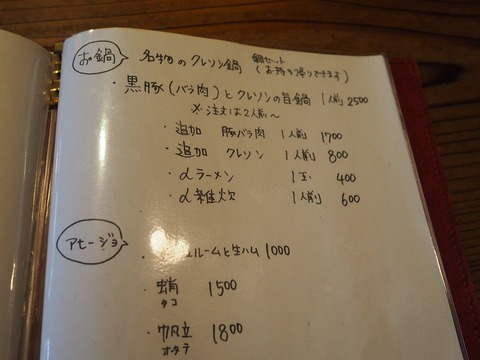 お鍋 名物のクレソン鍋 鍋セット
(お持ち帰りできます)
・黒豚(バラ肉)とクレソンの旨鍋 1人前 2500
※注文は2人前〜
・追加 豚バラ肉 1人前 1700
・追加 クレソン 1人前 800
・〆ラーメン 1玉 400
・〆雑炊 1人前 600
アヒージョ
ュルームと生ハム 1000
・蛸 1500
タコ
・帆立 1800
ホタテ